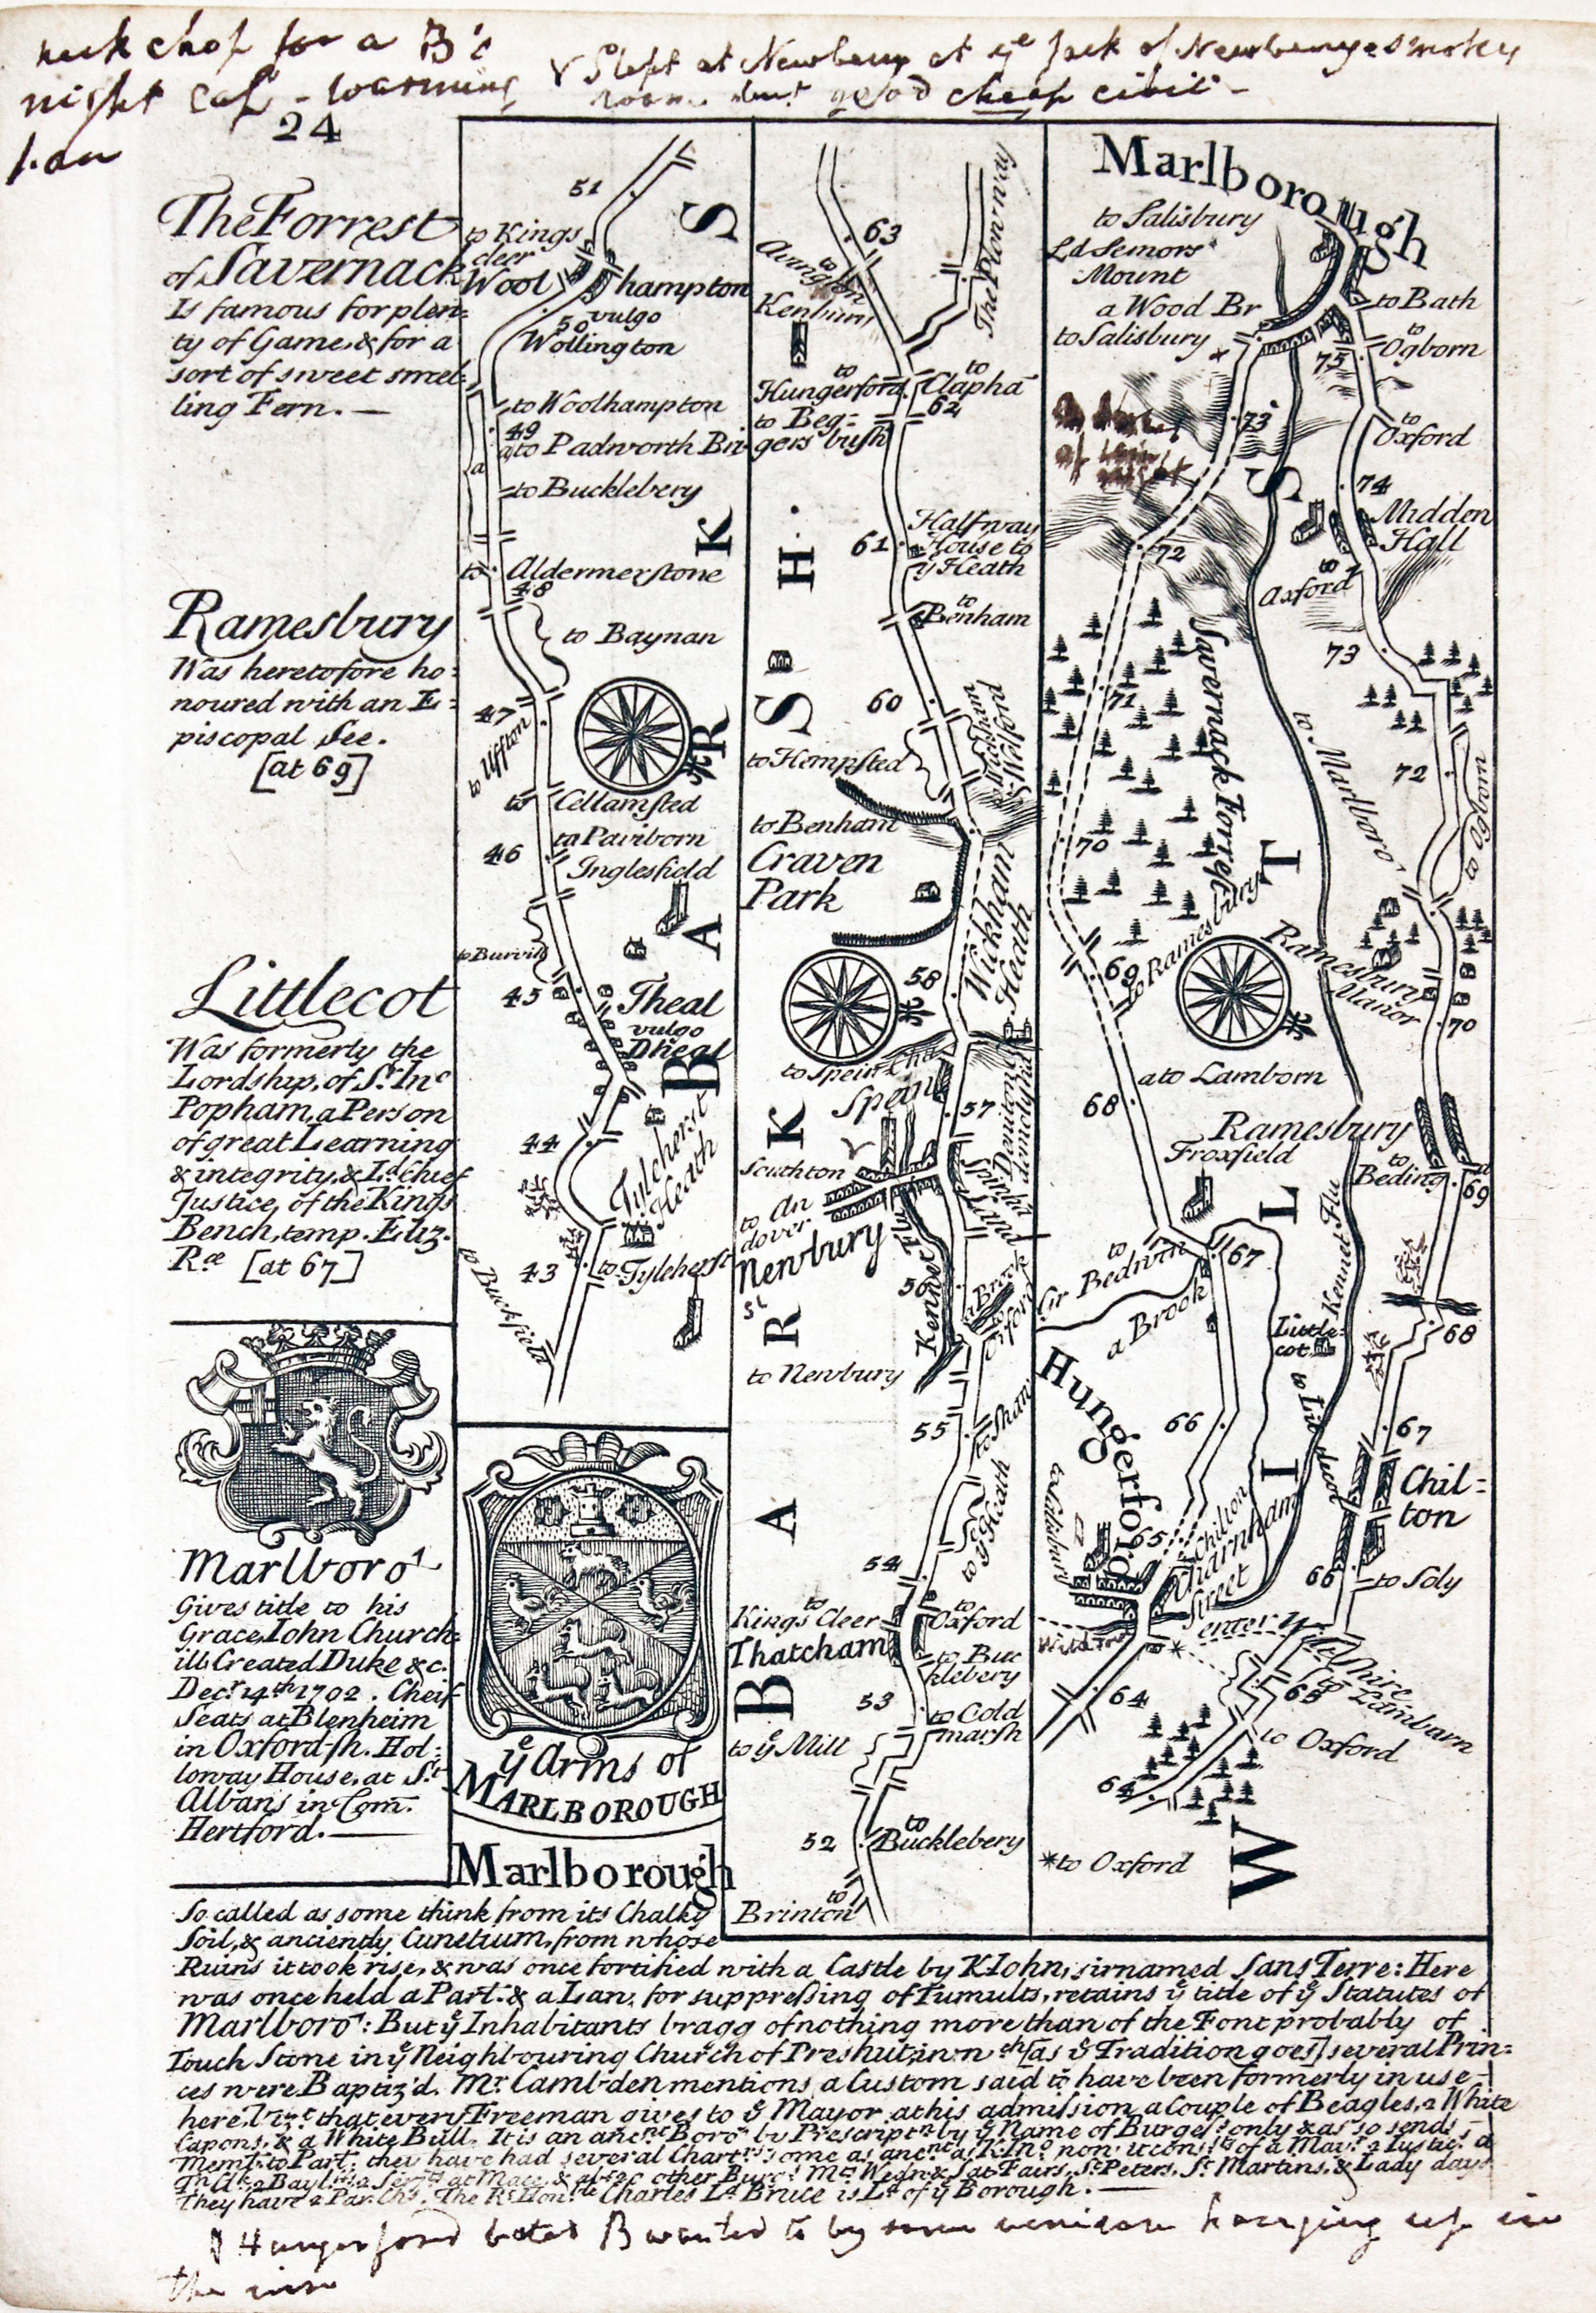 neck chop for a B's
night cap - warming
pan
& Slept at Newbury at ye Jack of Newberry a smokey
room but good cheap civil -
24
The Forrest
of Savernack
Is famous for plen=
ty of Game, & for a
sort of sweet smel=
ling Fern. —
Ramesbury
Was heretofore ho=
noured with an E=
piscopal See.
[at 69]
Littlecot
Was formerly the
Lordship, of Sr. Ino
Popham, a Person
of great Learning
& integrity, & Ld. Chief
Justice, of the Kings
Bench, temp. Eliz.
Rae [at 67]
Marlboro'
Gives title to his
Grace Iohn Church=
ill Created Duke &c.
Decr. 14th 1702. Cheif
Seats at Blenheim
in Oxford-sh. Hol=
loway House, at St.
Albans in Com.
Hertford. —
51
to Kings
cleer
Wool hampton
50 vulgo
Wollington
to Woolhampton
49
a to Padworth Bri
a
to Bucklebery
to Aldermerstone
48
to Baynan
47
to Uffton
to Cellamsted
to Paviborn
46
Inglesfield
to Burvil
45
Theal
vulgo
Dheal
44
Tylcherst
Heath
43
to Tyleherst
to Buckfield
B A R K S
ye Arms of
MARLBOROUGH
63
Avington
to
Kenbury
The Plow way
to Hungerford
to Clapha
62
to Beg=
gers bush
61
Halfway
House to
ye Heath
to Benham
60
to Hempsted
to Benham
Craven
Park
Wickham
Heath
58
to Spein
Spein
57
Southton
to An
dover
Newbury
56
Kennet Flu
a Brook
to Oxford
to Newbury
55
to Shaw
to ye Heath
54
to Kings Cleer
to Oxford
Thatcham
to Buc
klebery
53
to Cold
marsh
to ye Mill
52
to Bucklebery
to Brinton
B A R K S H.
Marlborough
to Salisbury
Ld Semors
Mount
a Wood Br
to Salisbury
to Bath
to Ogborn
75
73
to Oxford
74
Midden
Hall
72
to Axford
73
Savernack Forrest
71
to Marlboro'
72
to Ogborn
70
to Ramesbury
69
Ramesbury
Manor
70
a to Lamborn
68
Ramesbury
Froxfield
to
Beding
69
to
Gr Bedwin
67
Kennet Flu
a Brook
Little=
cot
68
Hungerford
66
67
Chil=
ton
to Salisbury
65
to Chilton
Charnham
Street
66
to Soly
enter Wiltshire
64
to Lambarn
65
to Oxford
64
*to Oxford
W I L T S
Marlborough
So called as some think from its Chalky
Soil, & anciently Cunetium, from whose
Ruins it took rise, & was once fortified with a Castle by K Iohn, sirnamed Sans Terre: Here
was once held a Parl. & a Law, for suppressing of Tumults, retains ye title of ye Statutes of
Marlboro': But ye Inhabitants bragg of nothing more than of the Font probably of
Touch Stone in ye Neighbouring Church of Preshut, in wch [as ye Tradition goes] several Prin=
ces were Baptiz'd. Mr. Cambden mentions a Custom said to have been formerly in use
here, Vizt. that every Freeman gives to ye Mayor at his admission a Couple of Beagles, 2 White
Capons, & a White Bull. It is an ancnt Boro' by Prescriptn by ye Name of Burgesses only & as so sends
Memb. to Parl. they have had several Charters some as ancnt as K. Ino. now it consists of a May. 2 Justices a
Tn. Clk. 2 Bayl. 2 Serjts. at Mace, & abt. other Burgs. Mts. Wedn. & Sat. Fairs, St. Peters, St. Martins, & Lady days
They have 2 Par. Chs. The Rt. Honble. Charles Ld. Bruce is Ld. of ye Borough. —
Hungerford bated B wanted to by some venison hanging up in
the inn